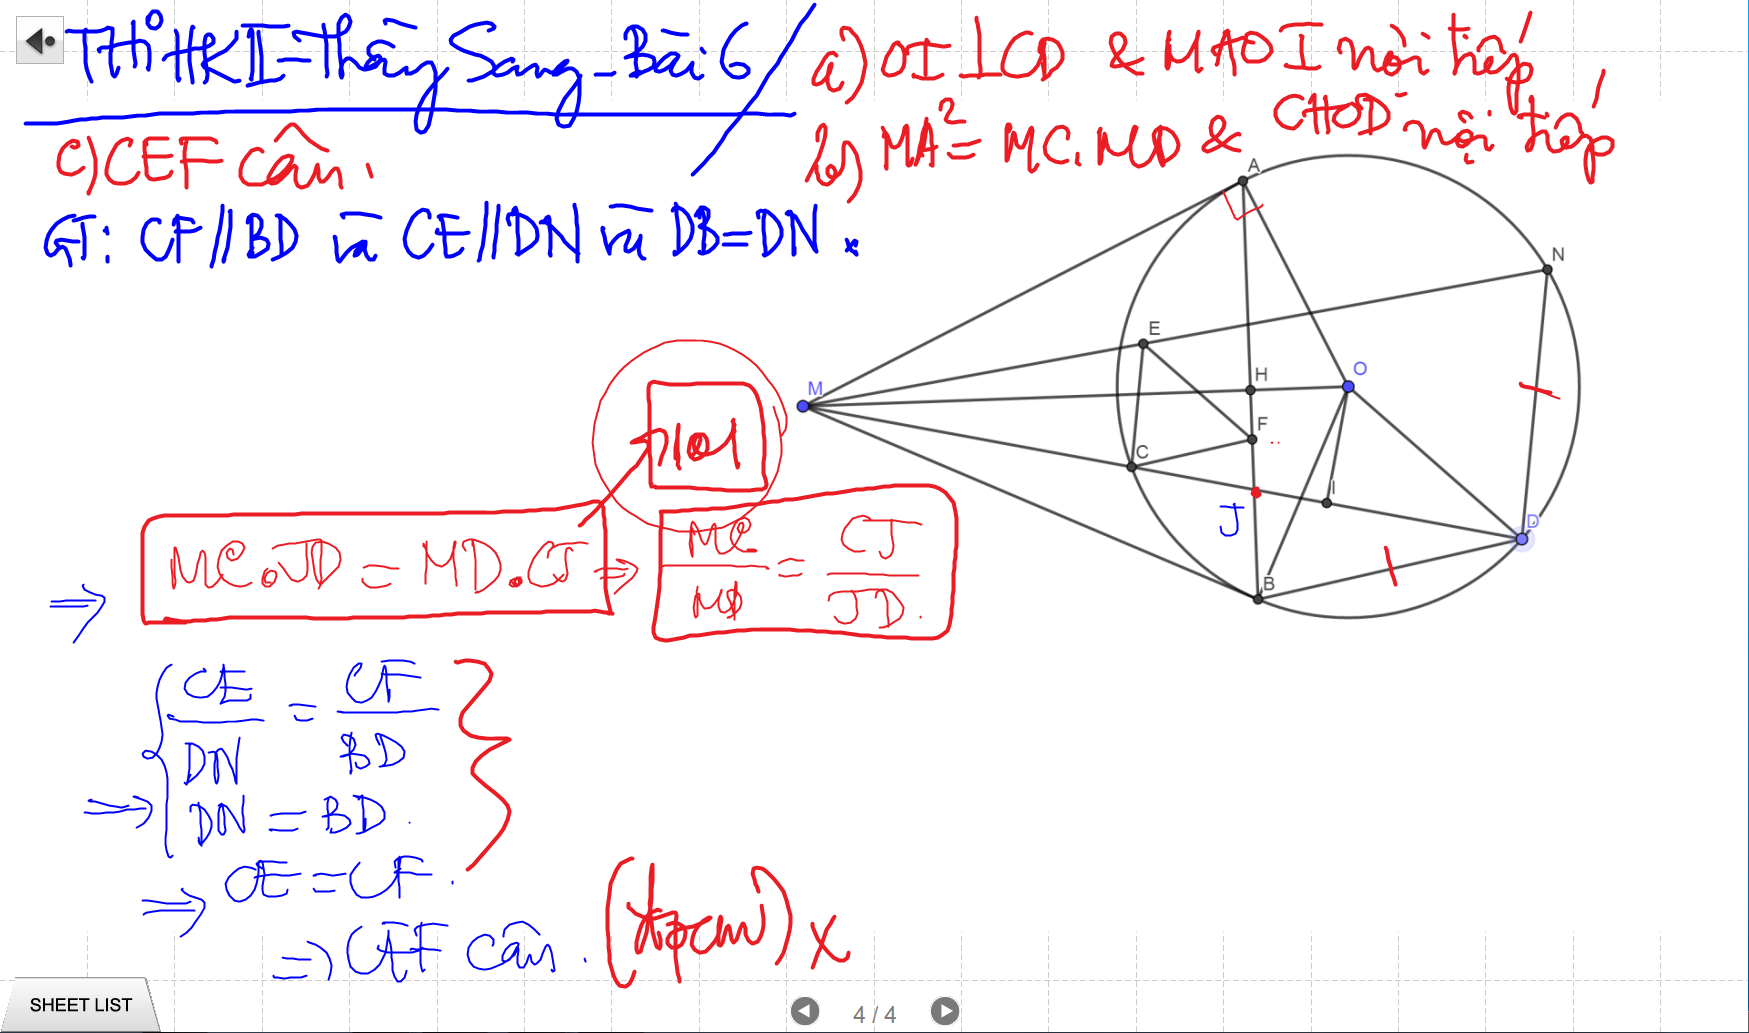 Thi HKII - Thầy Sang - Bài 6
a) OI ⊥ CD & MAOI nội tiếp
b) MA² = MC.MD & CHOD nội tiếp
c) CEF cân.
GT: CF // BD và CE // DN và DB = DN.
A
N
E
M
H
O
F
C
I
J
D
B
⇒ MC.JD = MD.CJ ⇒ MC/MD = CJ/JD.
⇒ { CE/DN = CF/BD
DN = BD.
⇒ CE = CF.
⇒ CEF cân. (đpcm)
SHEET LIST
4 / 4